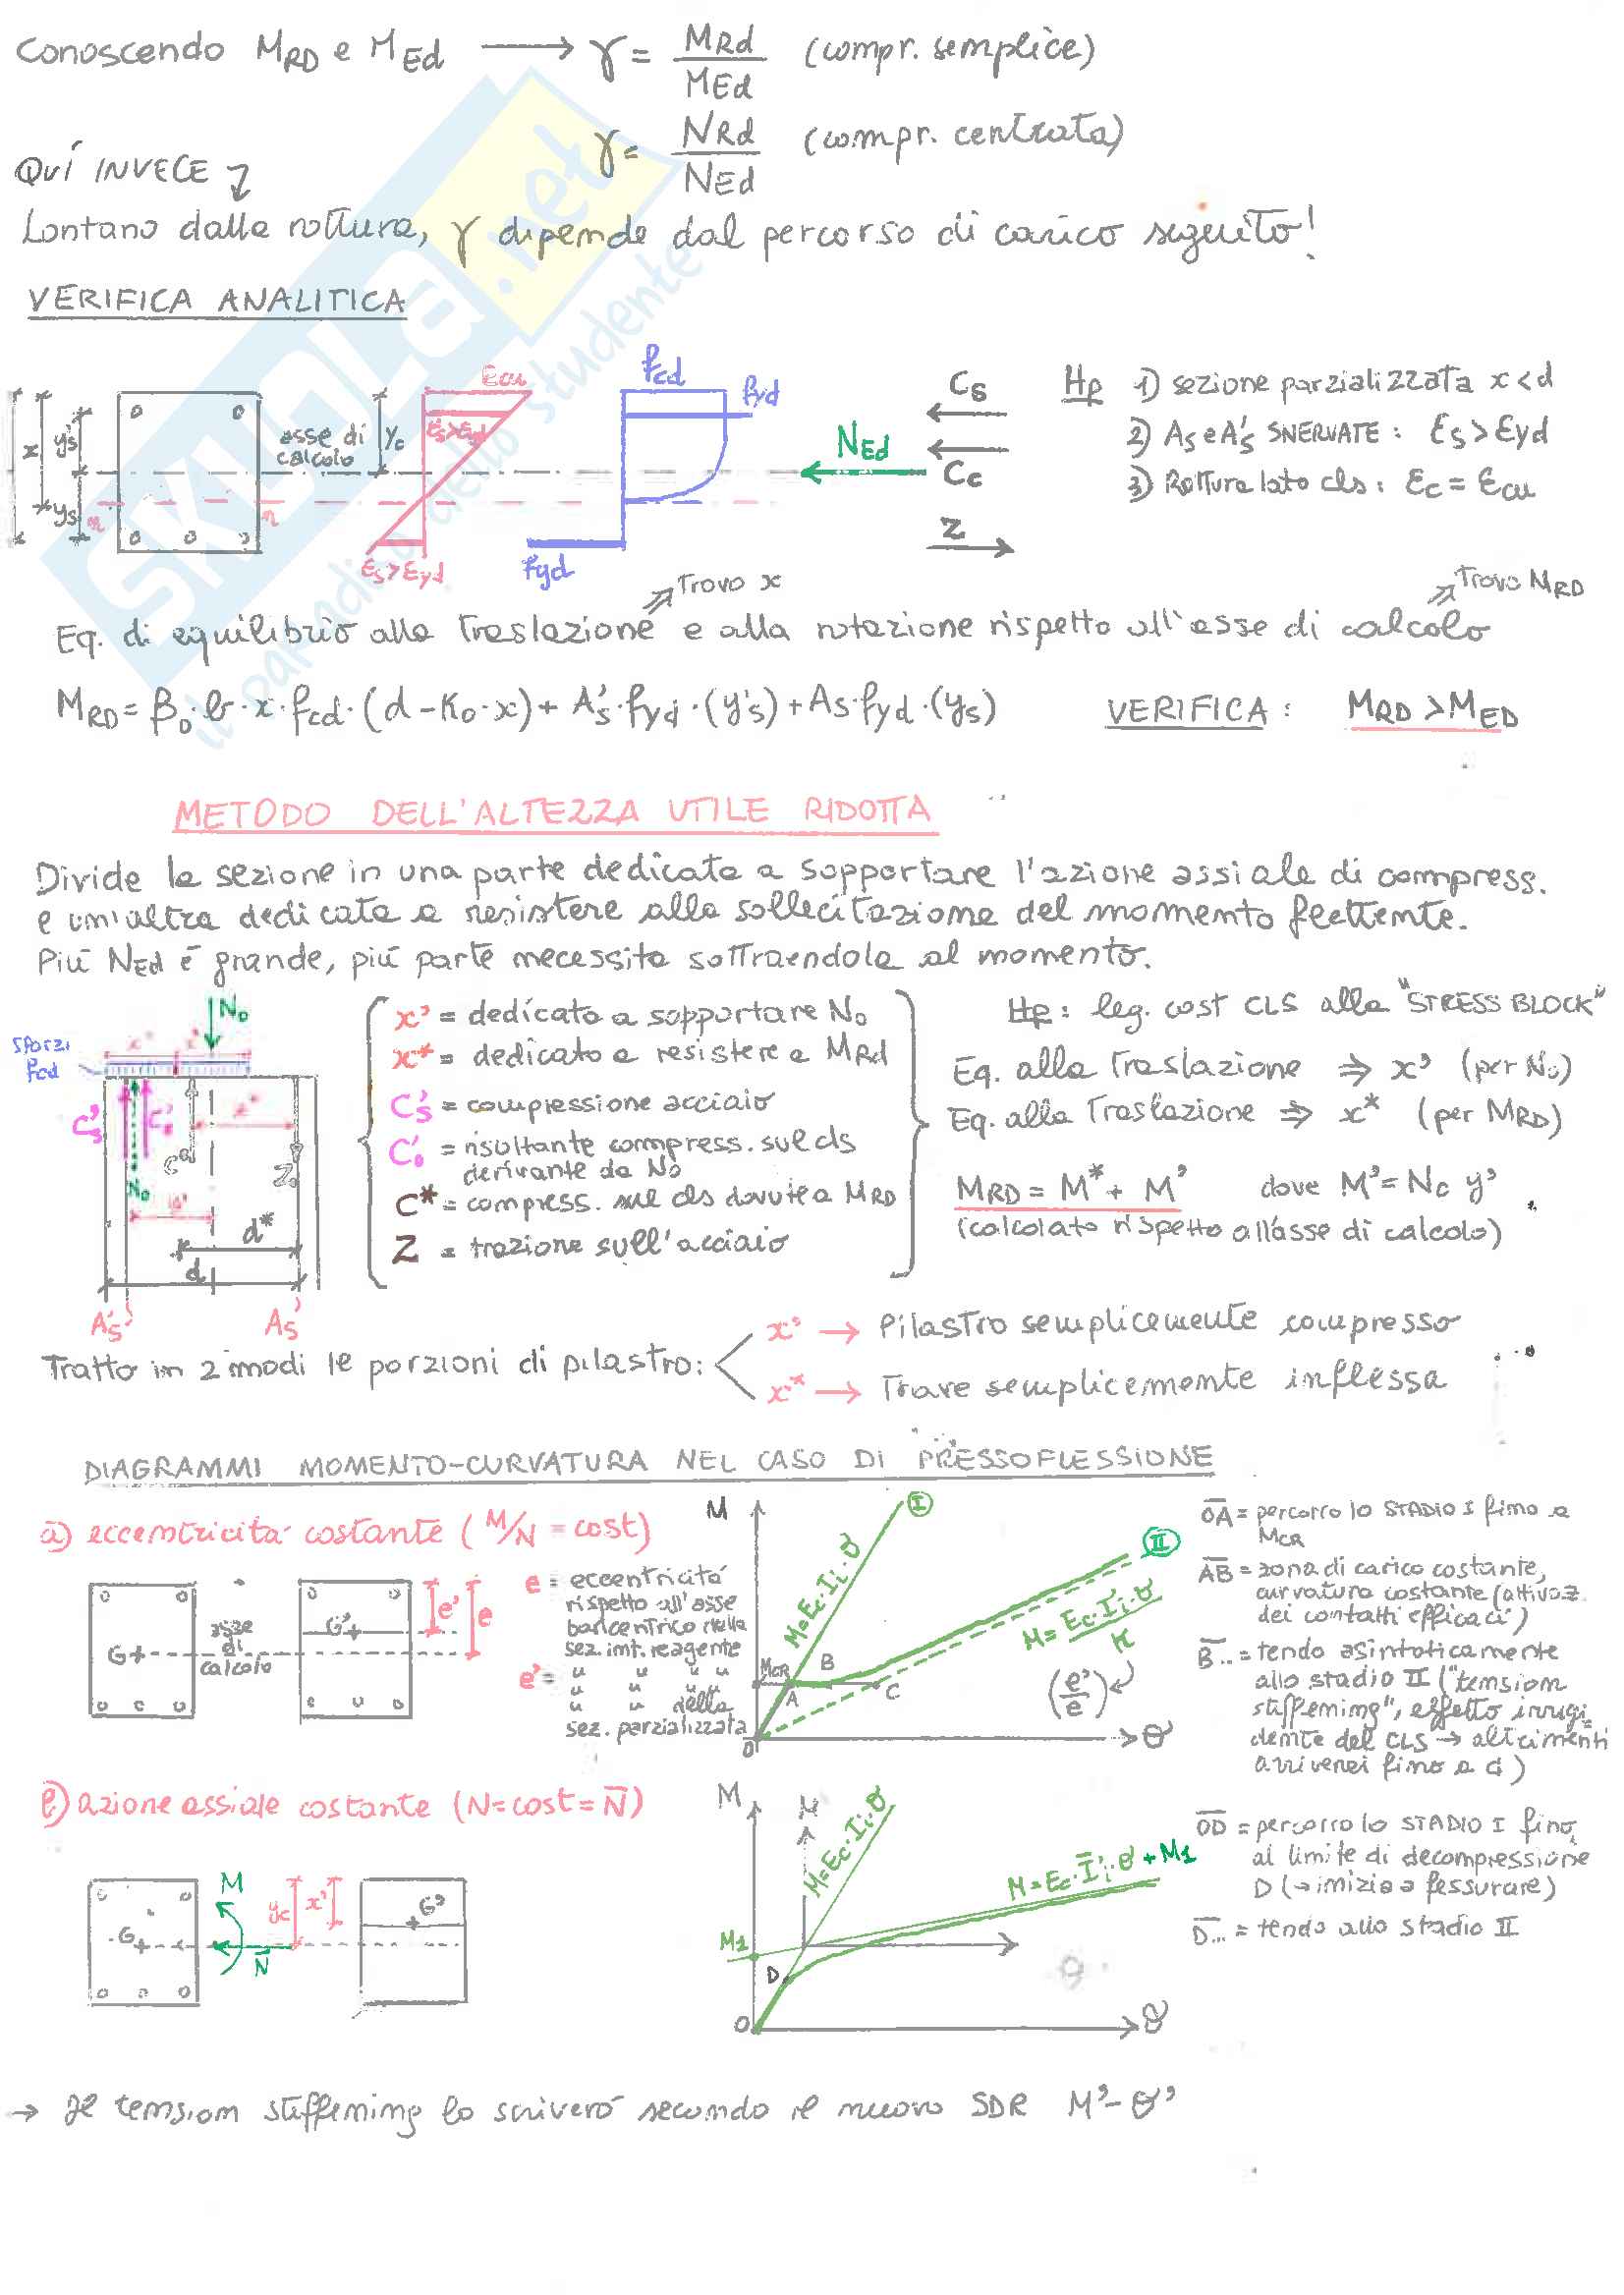 Conoscendo MRD e MEd → γ = MRd / MEd (compr. semplice)
γ = NRd / NEd (compr. centrata)
QUÍ INVECE
Lontano dalla rottura, γ dipende dal percorso di carico seguito!
VERIFICA ANALITICA
x y's ys
asse di calcolo
yc
n n
Ecu
Es>Eyd
Es>Eyd
fcd
fyd
fyd
NEd
Cs
Cc
Z
Hp 1) sezione parzializzata x<d
2) As e A's SNERVATE: Es > Eyd
3) Rottura lato cls: Ec = Ecu
Trovo x
Trovo MRD
Eq. di equilibrio alla traslazione e alla rotazione rispetto all'asse di calcolo
MRD = β0·b·x·fcd·(d-K0·x)+A's·fyd·(y's)+As·fyd·(ys) VERIFICA: MRD >MED
METODO DELL'ALTEZZA UTILE RIDOTTA
Divide la sezione in una parte dedicata a sopportare l'azione assiale di compress.
e un'altra dedicata a resistere alla sollecitazione del momento flettente.
Piú NEd é grande, piú parte necessita sottraendola al momento.
N0
sforzi fcd
C's
C*
Z
N0
d*
d
A's
As
x' = dedicato a sopportare N0
x* = dedicato a resistere a MRd
C's = compressione acciaio
C'0 = risultante compress. sul cls
derivante da N0
C* = compress. sul cls dovute a MRD
Z = trazione sull'acciaio
Hp: leg. cost CLS alla "STRESS BLOCK"
Eq. alla Traslazione ⇒ x' (per N0)
Eq. alla Traslazione ⇒ x* (per MRD)
MRD = M* + M' dove M' = Nc y'
(calcolato rispetto all'asse di calcolo)
Tratto in 2 modi le porzioni di pilastro:
x' → Pilastro semplicemente compresso
x* → Trave semplicemente inflessa
DIAGRAMMI MOMENTO-CURVATURA NEL CASO DI PRESSOFLESSIONE
a) eccentricitá costante (M/N = cost)
G
asse di calcolo
G'
e'
e
e = eccentricitá
rispetto all'asse
baricentrico nella
sez. int. reagente
e' = " " " "
" " della
sez. parzializzata
M
I
M=Ec·Ii·θ
II
M = Ec·I'i·θ / K
(e'/e)
MCR
A
B
C
O
θ
OA = percorro lo STADIO I fino a
MCR
AB = zona di carico costante,
curvatura costante (attivaz.
dei contatti efficaci)
B... = tendo asintoticamente
allo stadio II ("tension
stiffening", effetto irrigi=
dente del CLS → altrimenti
arriverei fino a C)
b) azione assiale costante (N=cost=N)
G
M
N
yc
x'
G'
M
M
M=Ec·Ii·θ
M=Ec·I'i·θ+M1
M1
D
O
θ
OD = percorro lo STADIO I fino
al limite di decompressione
D (→ inizia a fessurare)
D... = tendo allo stadio II
→ Il tension stiffening lo scriveró secondo il nuovo SDR M'-θ'
SKUOLA.net
il paradiso dello studente